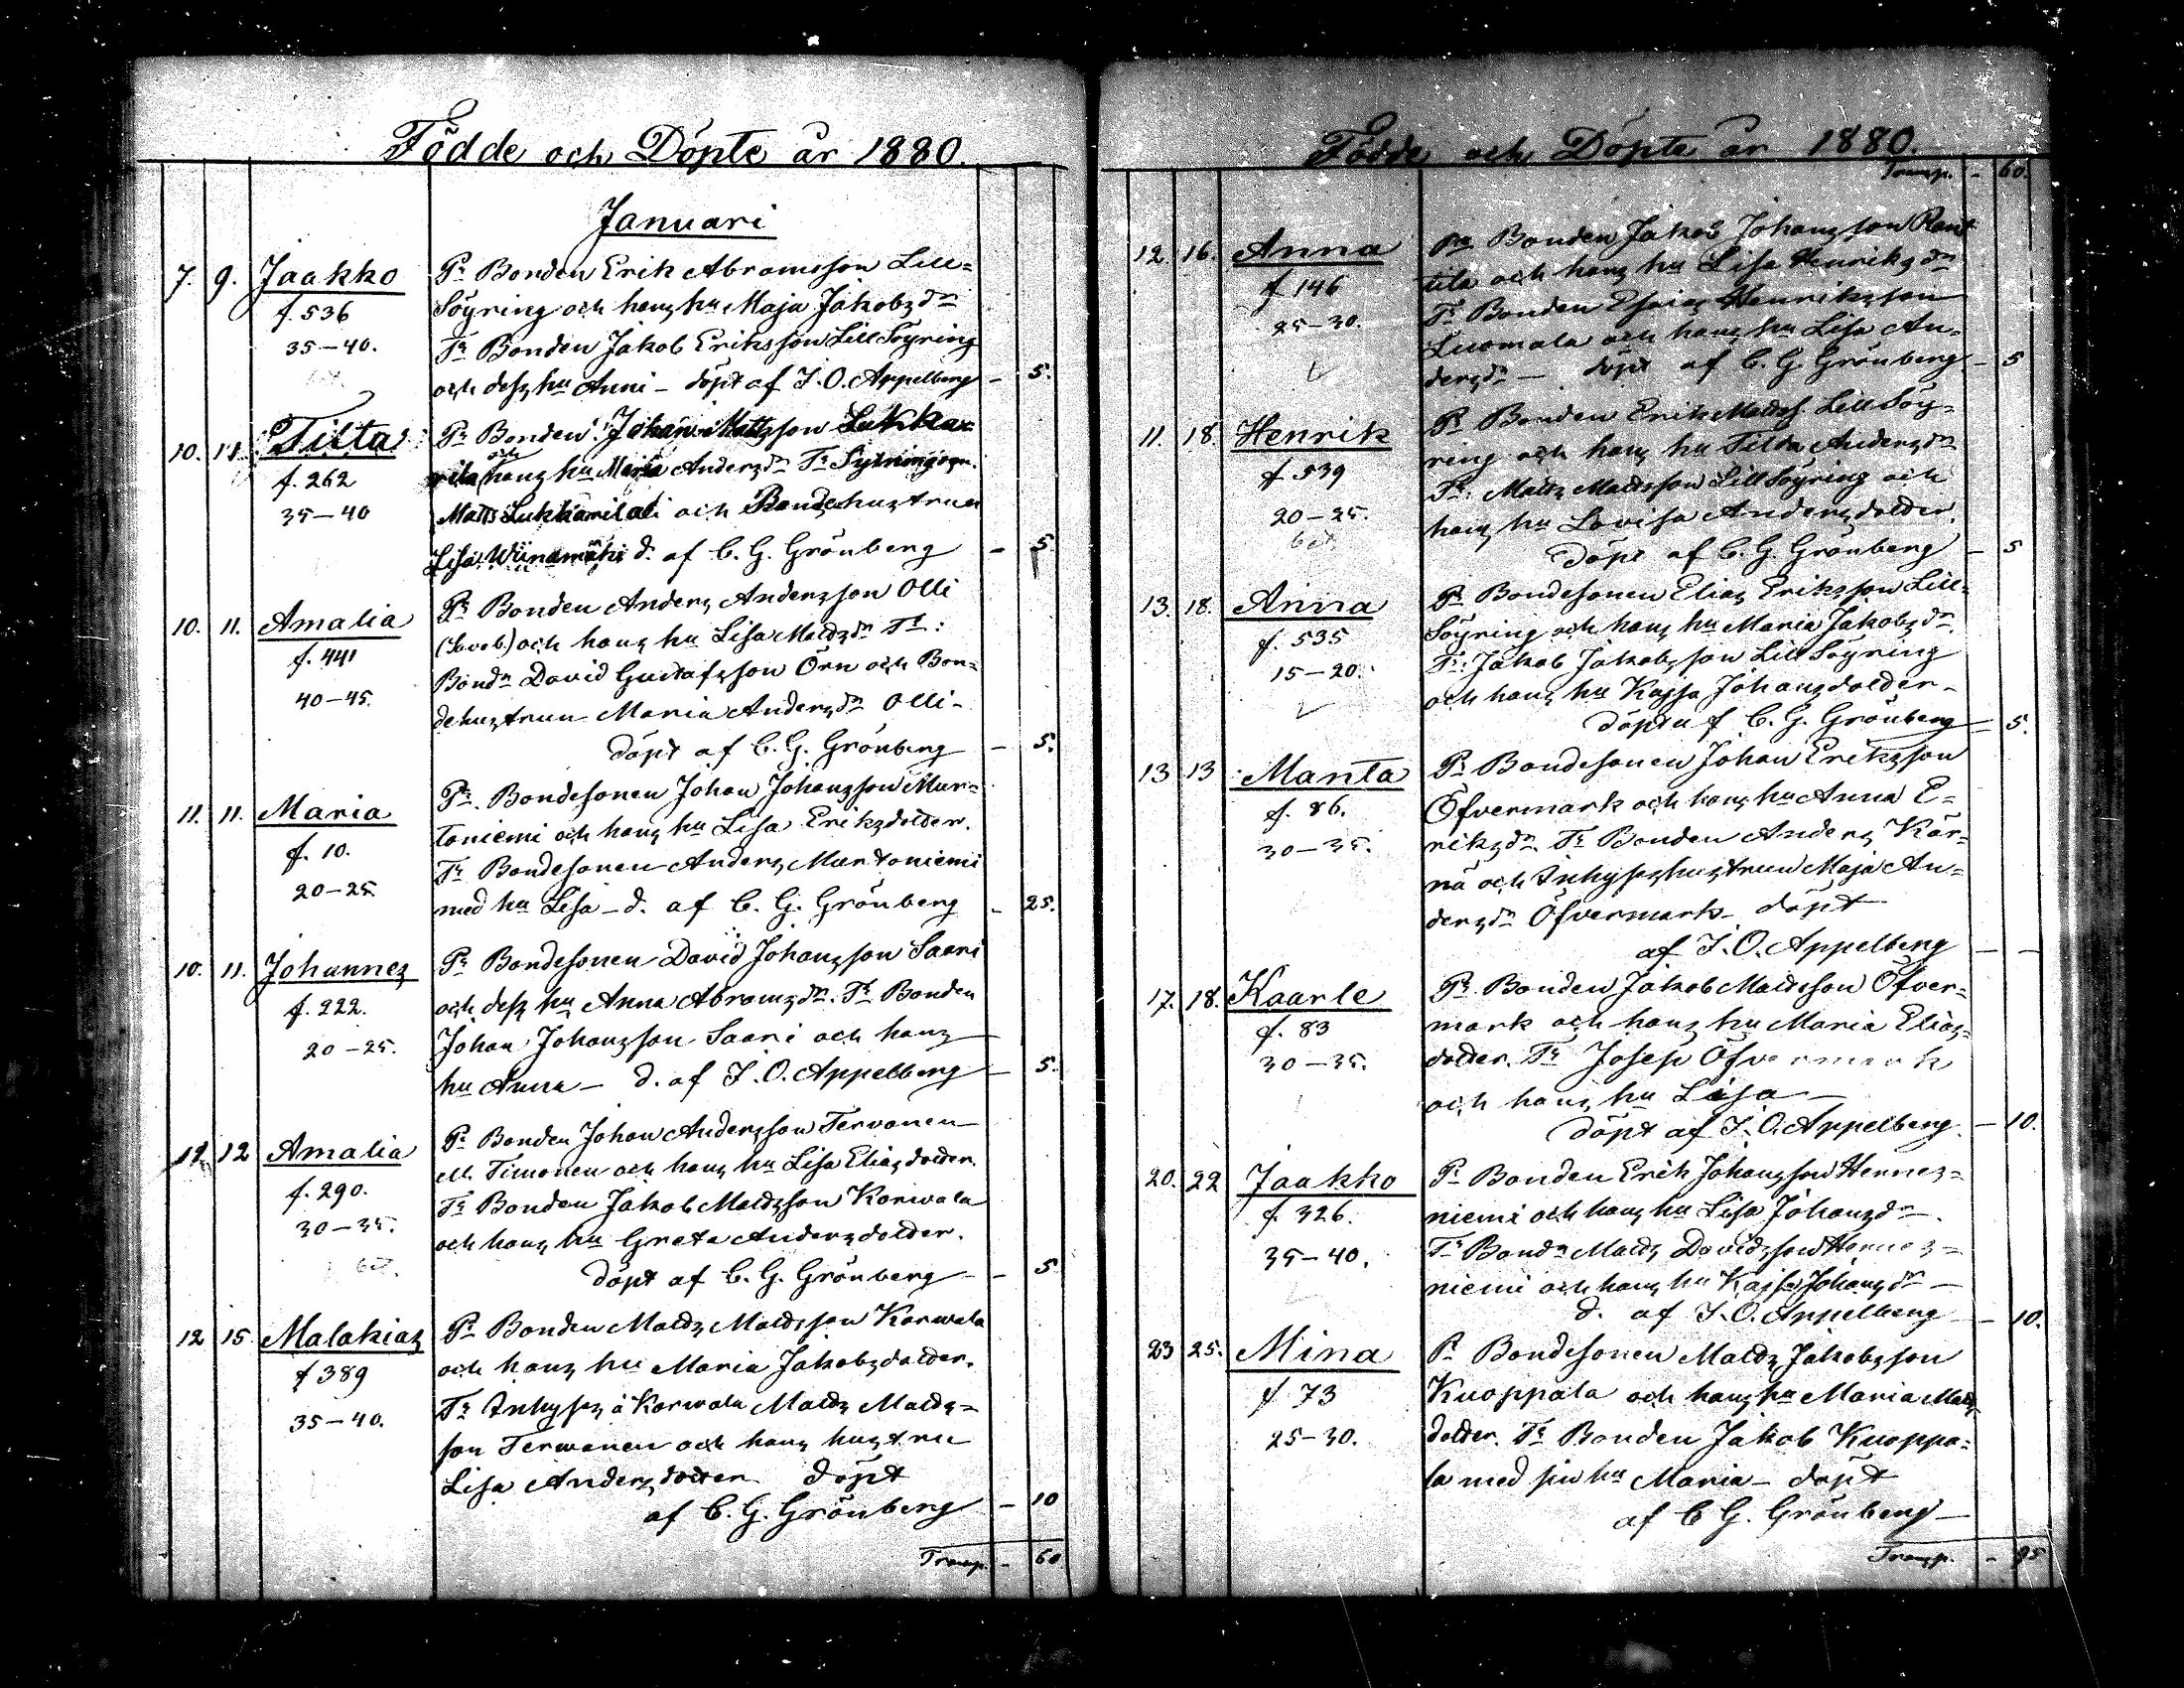 Födde och Döpte år 1880.
Januari
7. 9. Jaakko Pr Bonden Erik Abramsson Lill=
f. 536 Söyring och hans hu Maja Jakobsdr
35-40. Tr Bonden Jakob Eriksson Lill Söyring
och dess hu Anni - döpt af J. O. Appelberg - 5.
10. 11. Tilta Pr Bonden Johan Mattsson Lukka=
f. 262 rila och hans hu Maria Andersdr Tr
35-40 Matts Lukkarila och Bondehustrun
Lisa Wiinamäki d. af C. G. Grönberg - 5.
10. 11. Amalia Pr Bonden Anders Andersson Olli
f. 441 och hans hu Lisa Mattsdr Tr:
40-45. Bondn David Gustafsson Örn och Bon=
dehustrun Maria Andersdr Olli-
döpt af C. G. Grönberg - 5.
11. 11. Maria Pr. Bondesonen Johan Johansson Mur=
f. 10. toniemi och hans hu Lisa Eriksdotter.
20-25 Tr Bondesonen Anders Murtoniemi
med hu Lisa - d. af C. G. Grönberg - 25.
10. 11. Johannes Pr Bondesonen David Johansson Saari
f. 222. och dess hu Anna Abramsdr. Tr Bonden
20-25. Johan Johansson Saari och hans
hu Anna - d. af J. O. Appelberg - 5.
12 Amalia Pr Bonden Johan Andersson Tervonen
f. 290. M. Timonen och hans hu Lisa Eliasdotter.
30-35. Tr Bonden Jakob Mattsson Korwala
bet. och hans hu Greta Andersdotter.
döpt af C. G. Grönberg - 5
12 15. Malakias Pr Bonden Matts Mattsson Korwala
f 389 och hans hu Maria Jakobsdotter.
35-40. Tr Inhyses å Korwala Matts Matts=
son Terwonen och hans hustru
Lisa Andersdotter döpt
af C. G. Grönberg - 10
Transp. - 60
Födde och Döpte år 1880.
Transp. - 60.
12. 16. Anna Pr Bonden Jakob Johansson Rant
f 146 tila och hans hu Lisa Henriksdr
25-30. Tr Bonden Esaias Henriksson
Luomala och hans hu Lisa An=
dersdr - döpt af C. G. Grönberg - 5
11. 18. Henrik Pr Bonden Erik Matts. Lill Söy=
f 539 ring och hans hu Tilda Andersdr
20-25. Tr: Matts Mattsson Lill Söyring och
bet. hans hu Lovisa Andersdotter.
döpt af C. G. Grönberg - 5
13. 18. Anna Pr Bondesonen Elias Eriksson Lill=
f. 535 Söyring och hans hu Maria Jakobsdr.
15-20. Tr: Jakob Jakobsson Lill Söyring
och hans hu Kajsa Johansdotter-
döpt af C. G. Grönberg - 5.
13 13 Manta Pr Bondesonen Johan Eriksson
f. 86. Öfvermark och hans hu Anna E=
30-35. riksdr. Tr Bonden Anders Kär=
nä och Inhyseshustrun Maja An=
dersdr Öfvermark- döpt
af J. O. Appelberg - -
17. 18. Kaarle Pr. Bonden Jakob Mattsson Öfver=
f. 83 mark och hans hu Maria Elias=
30-35. dotter. Tr Josep Öfvermark
och hans hu Lisa-
döpt af J. O. Appelberg. - 10.
20. 22 Jaakko Pr Bonden Erik Johansson Hernes=
f. 326. niemi och hans hu Lisa Johansdr-.
35-40. Tr Bondn Matts Davidsson Hernes=
niemi och hans hu Kajsa Johansdr -
d. af J. O. Appelberg - 10.
23 25. Mina Pr Bondesonen Matts Jakobsson
f 73 Kuoppala och hans hu Maria Matts
25-30. dotter. Tr Bonden Jakob Kuoppa=
la med sin hu Maria - döpt
af C G. Grönberg -
Transp. - 95